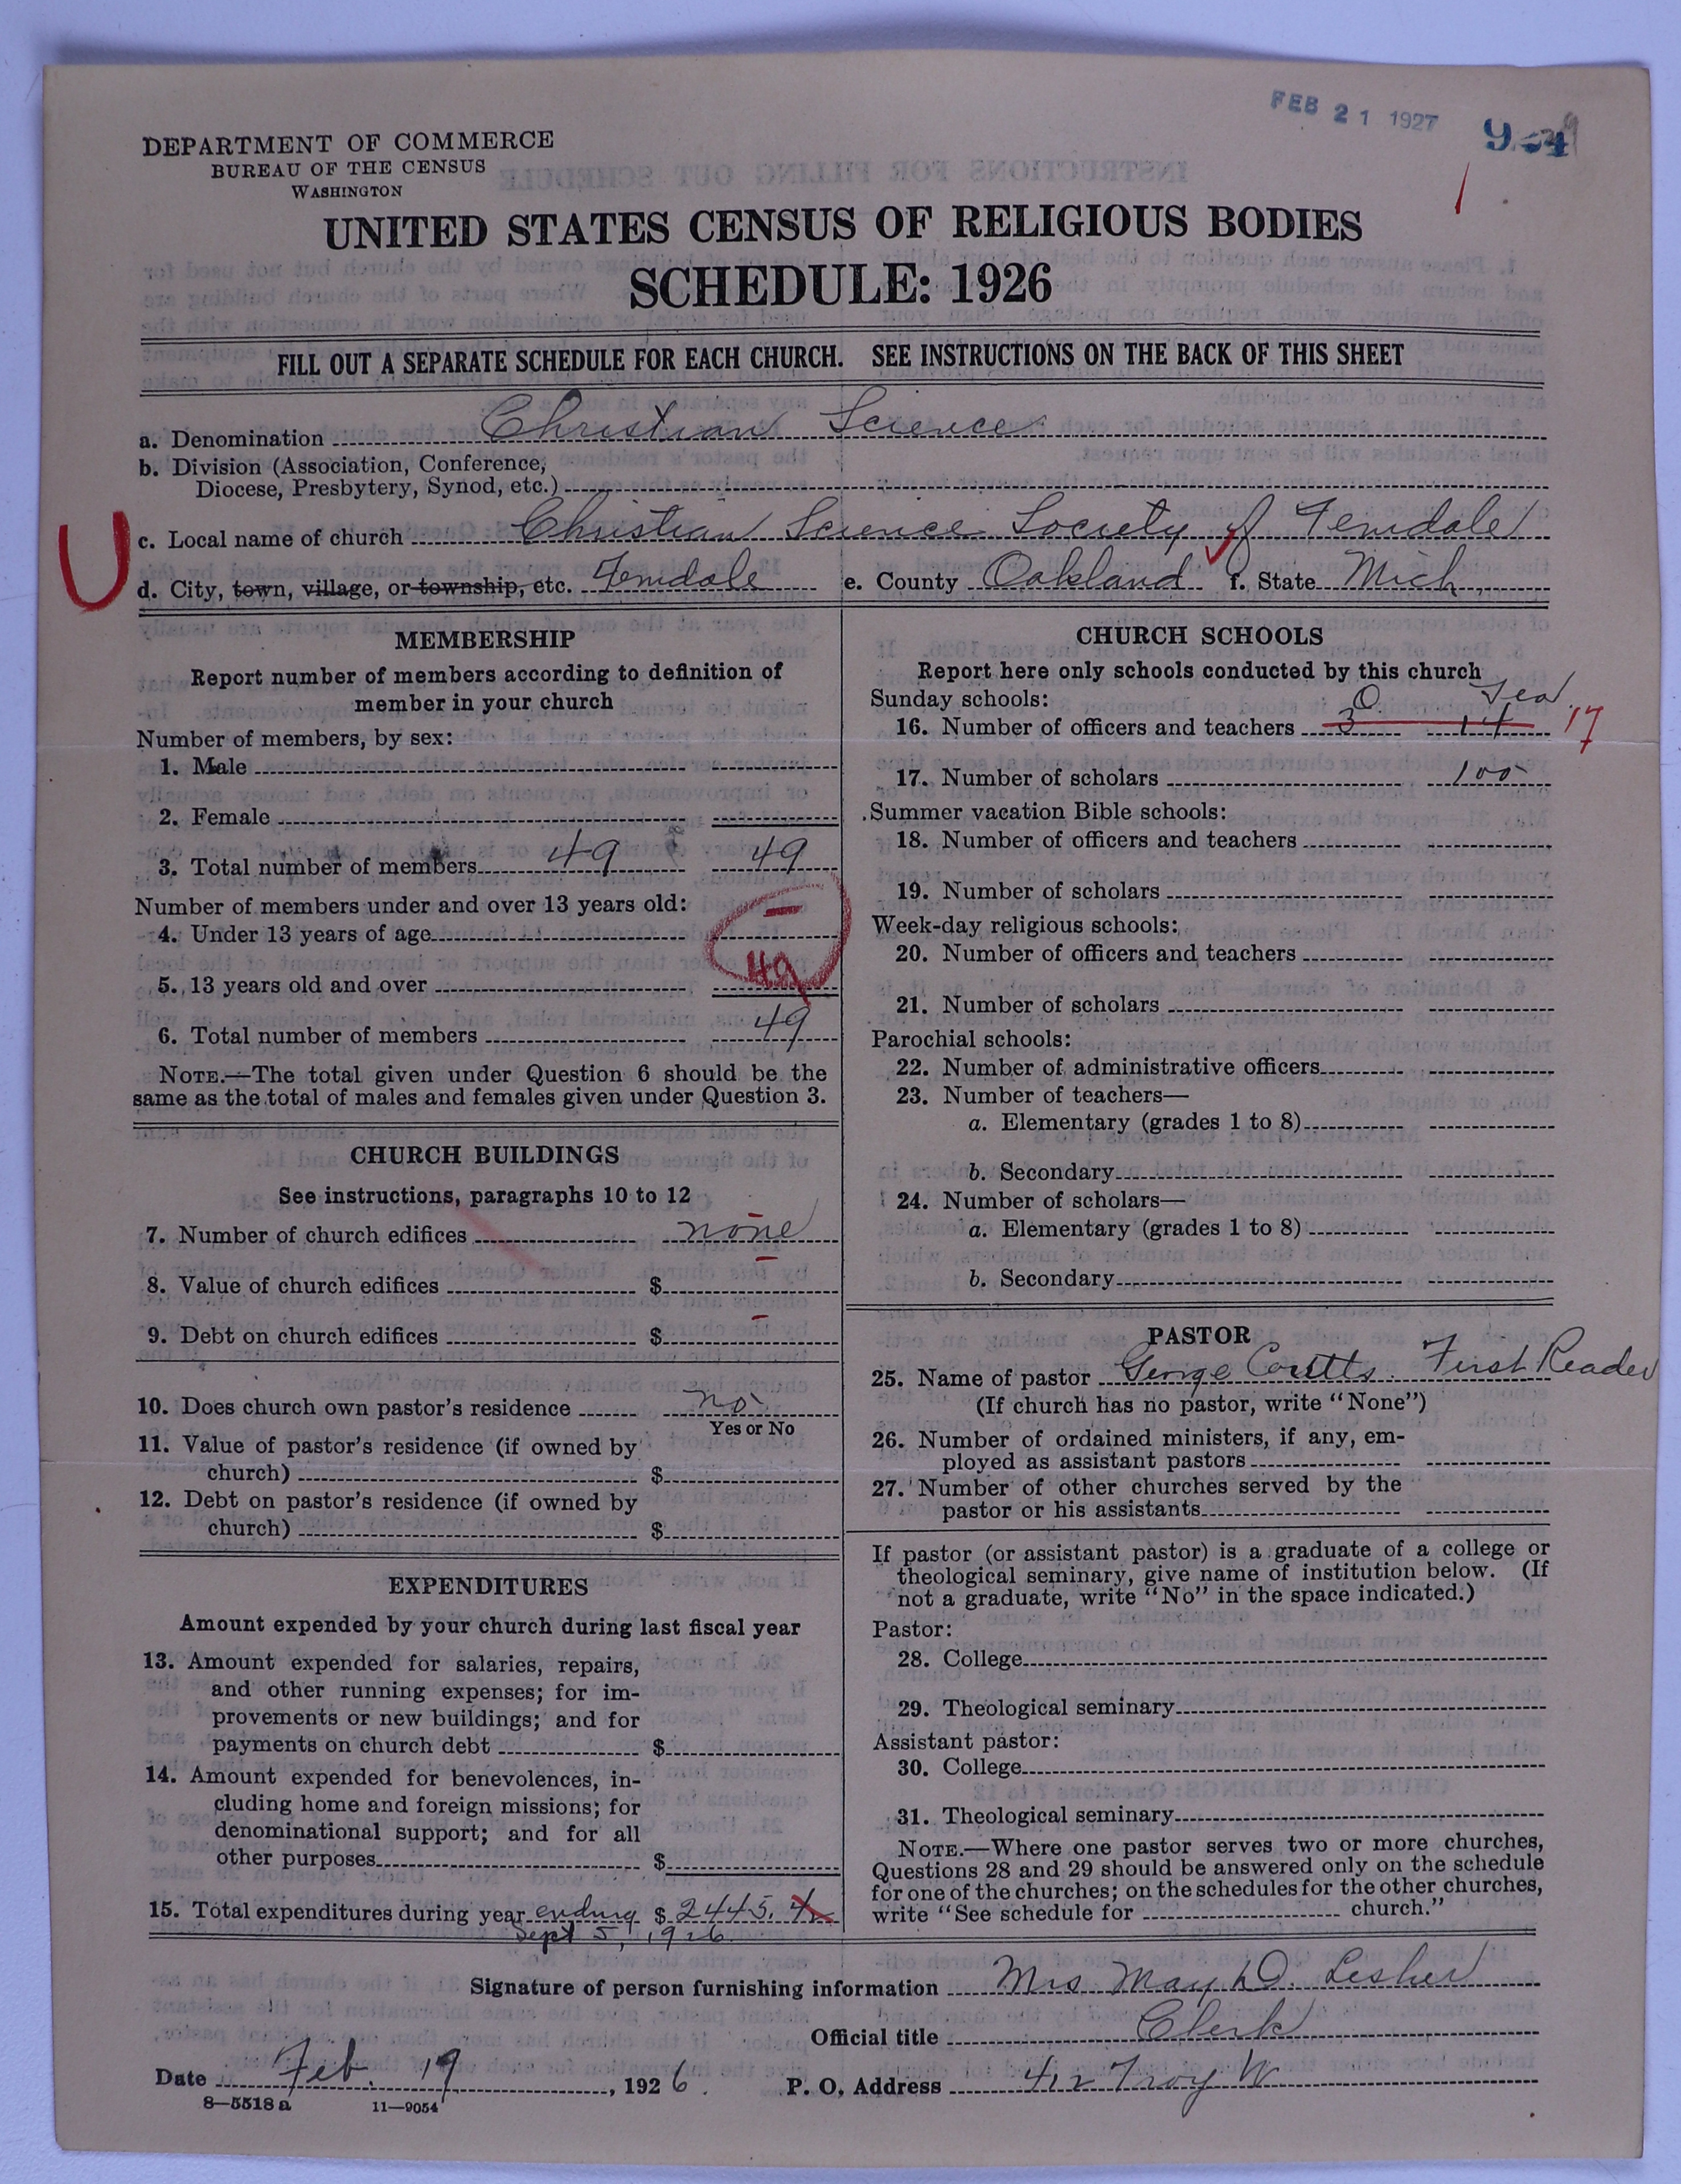 FEB 21 1927
DEPARTMENT OF COMMERCE
BUREAU OF THE CENSUS
WASHINGTON
UNITED STATES CENSUS OF RELIGIOUS BODIES
SCHEDULE: 1926
FILL OUT A SEPARATE SCHEDULE FOR EACH CHURCH. SEE INSTRUCTIONS ON THE BACK OF THIS SHEET
a. Denomination Christian Science
b. Division (Association, Conference,
Diocese, Presbytery, Synod, etc.)
U
c. Local name of church Christian Science Society of Ferndale
d. City, town, village, or township, etc. Ferndale e. County Oakland f. State Mich.
MEMBERSHIP
Report number of members according to definition of
member in your church
Number of members, by sex:
1. Male
2. Female
3. Total number of members 49 49
Number of members under and over 13 years old:
4. Under 13 years of age –
5. 13 years old and over 49
6. Total number of members 49
NOTE.—The total given under Question 6 should be the
same as the total of males and females given under Question 3.
CHURCH BUILDINGS
See instructions, paragraphs 10 to 12
7. Number of church edifices none
8. Value of church edifices $ –
9. Debt on church edifices $ –
10. Does church own pastor's residence no
Yes or No
11. Value of pastor's residence (if owned by
church) $
12. Debt on pastor's residence (if owned by
church) $
EXPENDITURES
Amount expended by your church during last fiscal year
13. Amount expended for salaries, repairs,
and other running expenses; for im-
provements or new buildings; and for
payments on church debt $
14. Amount expended for benevolences, in-
cluding home and foreign missions; for
denominational support; and for all
other purposes $
15. Total expenditures during year ending $ 2445.
Sept 5, 1926.
CHURCH SCHOOLS
Report here only schools conducted by this church
Sunday schools: O. Tea.
16. Number of officers and teachers 3 14 17
17. Number of scholars 100
Summer vacation Bible schools:
18. Number of officers and teachers
19. Number of scholars
Week-day religious schools:
20. Number of officers and teachers
21. Number of scholars
Parochial schools:
22. Number of administrative officers
23. Number of teachers—
a. Elementary (grades 1 to 8)
b. Secondary
24. Number of scholars—
a. Elementary (grades 1 to 8)
b. Secondary
PASTOR
25. Name of pastor George Coutts. First Reader
(If church has no pastor, write "None")
26. Number of ordained ministers, if any, em-
ployed as assistant pastors
27. Number of other churches served by the
pastor or his assistants
If pastor (or assistant pastor) is a graduate of a college or
theological seminary, give name of institution below. (If
not a graduate, write "No" in the space indicated.)
Pastor:
28. College
29. Theological seminary
Assistant pastor:
30. College
31. Theological seminary
NOTE.—Where one pastor serves two or more churches,
Questions 28 and 29 should be answered only on the schedule
for one of the churches; on the schedules for the other churches,
write "See schedule for church."
Signature of person furnishing information Mrs May D. Lesher
Official title Clerk
Date Feb. 19, 1926. P. O. Address 412 Troy W
8—5518 a 11—9054